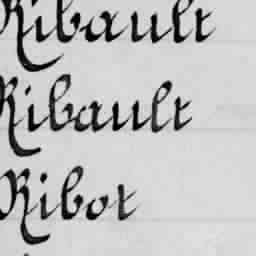 Ribault
Ribault
Ribot